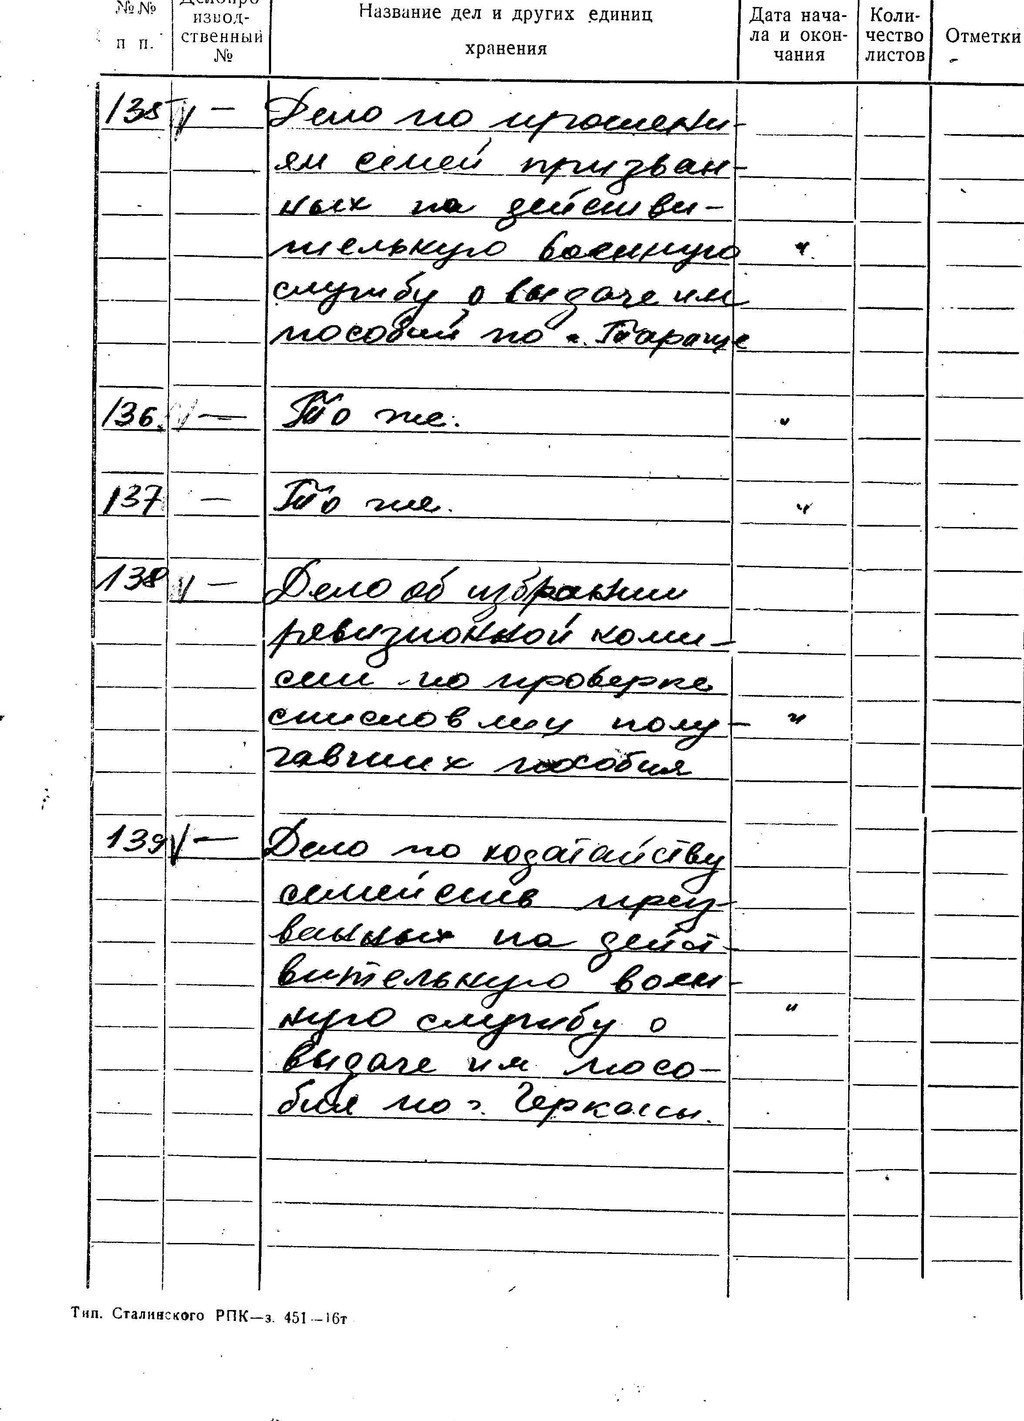 №№ Делопро- Название дел и других единиц Дата нача- Коли- Отметки
п п. извод- хранения ла и окон- чество
ственный чания листов
№
135 V — Дело по прошени-
ям семей призван-
ных на действи-
тельную военную "
службу о выдаче им
пособий по г. Тараще
136. V — То же. "
137 — То же. "
138 V — Дело об избрании
ревизионной коми-
сии по проверке
списков лиц полу- "
чавших пособия
139 V — Дело по ходатайству
семейств приз-
ванных на дейст-
вительную воен-
ную службу о "
выдаче им посо-
бия по г. Черкассы.
Тип. Сталинского РПК—з. 451—16т